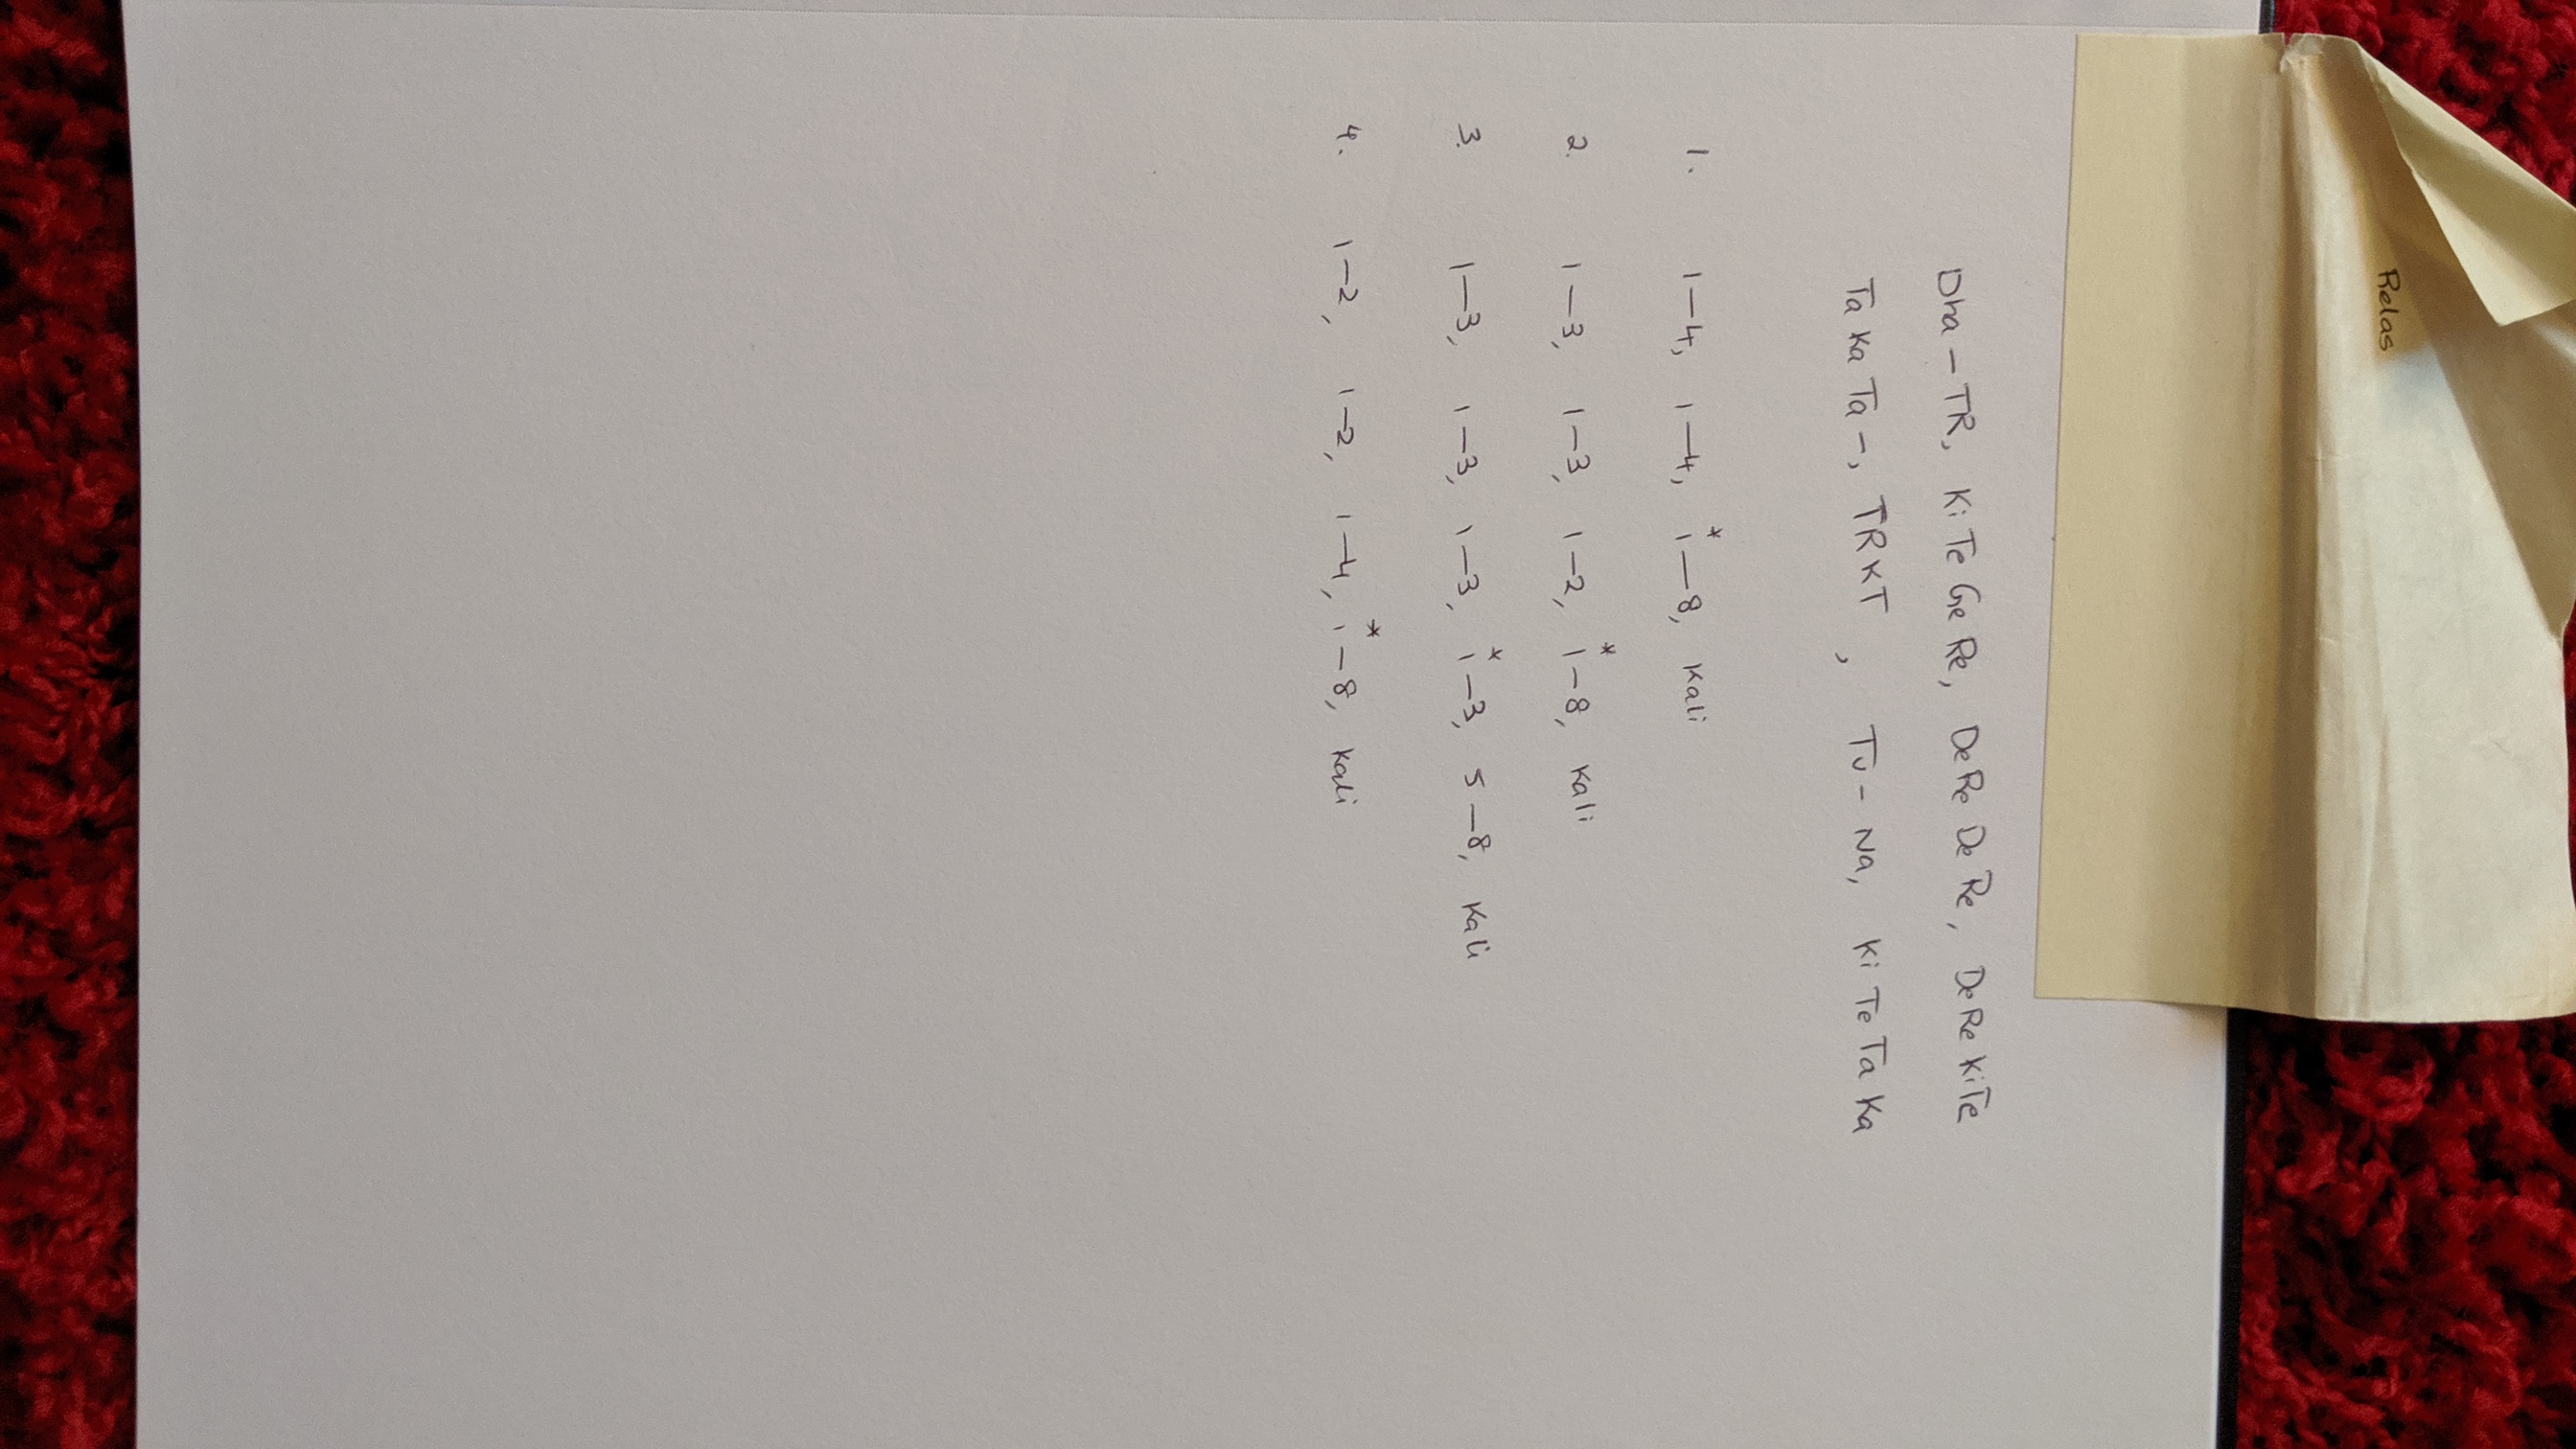 Relas
Dha - TR, Ki Te Ge Re, De Re De Re, De Re Ki Te
Ta Ka Ta -, TRKT , Tu - Na, Ki Te Ta Ka
1. 1-4, 1-4, *1-8, Kali
2. 1-3, 1-3, 1-2, *1-8, Kali
3. 1-3, 1-3, 1-3, *1-3, 5-8, Kali
4. 1-2, 1-2, 1-4, *1-8, Kali